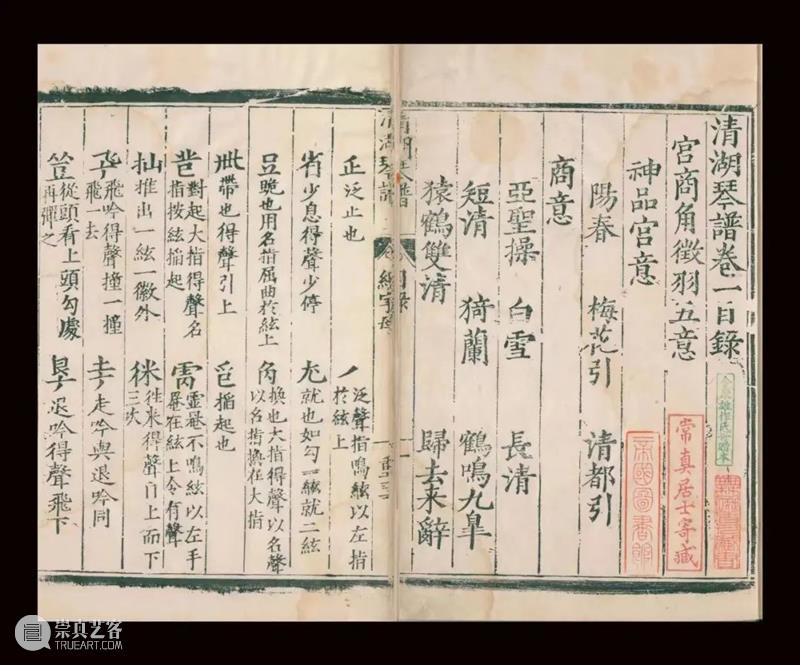 清湖琴譜卷一目錄
宮商角徵羽五意
神品宮意
陽春 梅花引 清都引
商意
亞聖操 白雪 長清
短清 猗蘭 鶴鳴九臯
猿鶴雙清 歸去来辭
常真居士寄藏
帝國圖書館
清湖琴譜
目錄
正 泛止也
丿 泛聲指鳴絃以左指於絃上
省 少息得聲少停
尤 就也如勾一絃就二絃
豆 跪也用名指屈曲於絃上
换也大指得聲以名聲以名指换在大指
帶也得聲引上
掐起也
對起大指得聲名指按絃掐起
霝 罨不鳴絃以左手罨在絃上令有聲
推出一絃一徽外
徃来得聲自上而下三次
飛吟得聲撞一撞飛一去
走吟與退吟同
從頭看上頭勾處再彈之
退吟得聲飛下
崇真艺客
TRUEART.COM